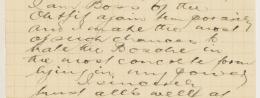 I am Boss of the
Outfit again temporarily
and I make the most
of such chances to
hate the Boodle in
the most concrete form
lying in my power
Sincerely
trust all is well at